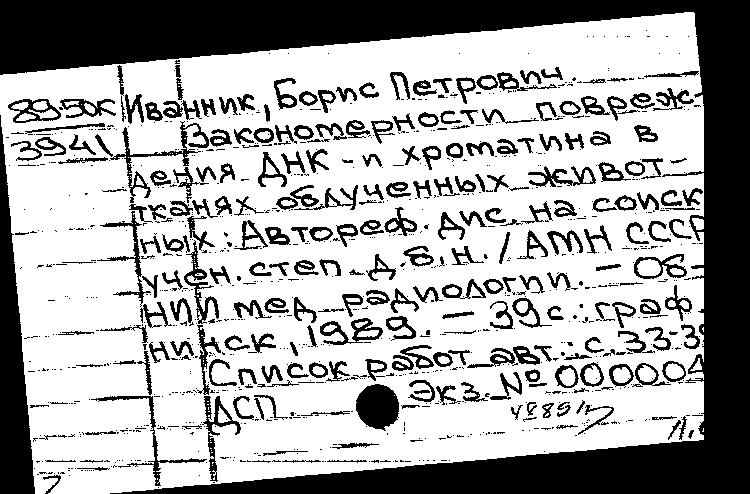 89-50к Иванник, Борис Петрович.
3941 Закономерности повреж-
дения ДНК-п хроматина в
тканях облученных живот-
ных: Автореф. дис. на соиск
учен. степ. д.б.н. / АМН СССР
НИИ мед. радиологии. - Об-
нинск, 1989. - 39 с.: граф.
Список работ авт.: с. 33-39
ДСП. Экз. № 000004